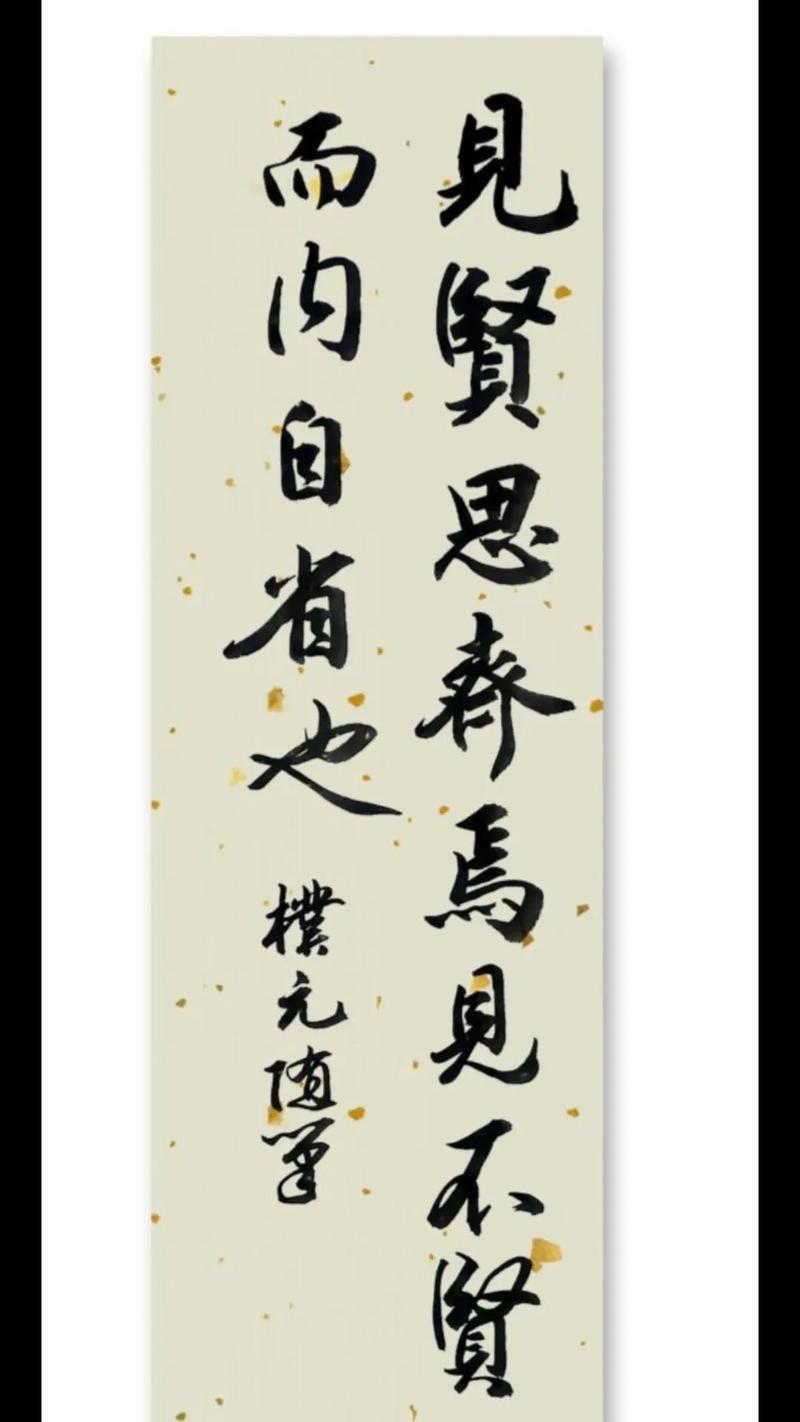 見賢思齊焉見不賢
而内自省也
樸元随筆